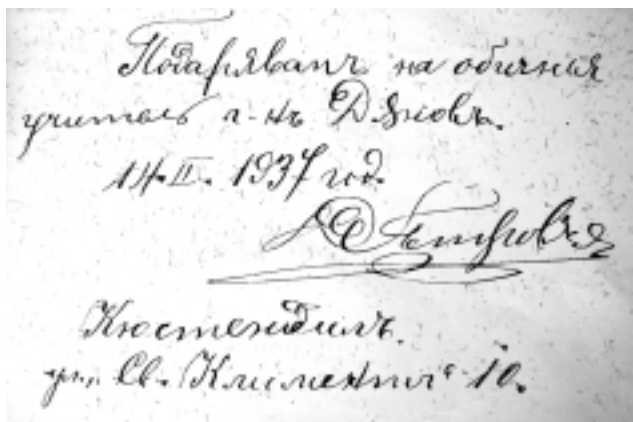 Подарявамъ на обичния
учитель г-нъ Дяновъ.
14.II. 1937 год.
Кюстендилъ.
ул. Св. Климентъ 10.